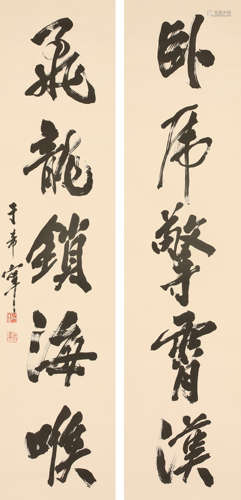 卧虎擎霄漢
飛龍鎖海喉
于希寧